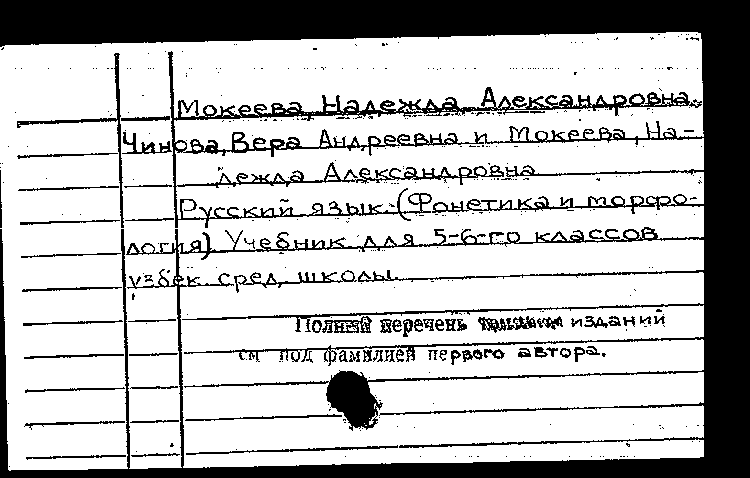 Мокеева, Надежда Александровна.
Чинова, Вера Андреевна и Мокеева, На-
дежда Александровна
Русский язык. (Фонетика и морфо-
логия). Учебник для 5-6-го классов
узбек. сред. школы.
Полный перечень изданий
см под фамилией первого автора.